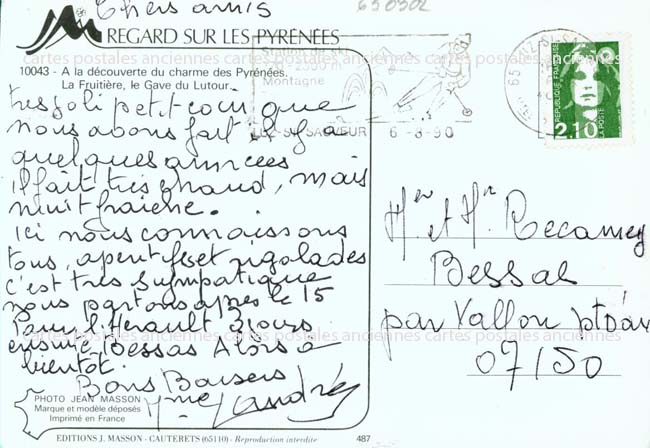 Chers amis
650302
REGARD SUR LES PYRÉNÉES
10043 - A la découverte du charme des Pyrénées.
La Fruitière, le Gave du Lutour.
très joli petit coin que
nous avons fait il y a
quelques années
il fait très chaud, mais
nuit fraîche.
Ici nous connaissons
tous, aperitifs et rigolades
c'est très sympatique
nous partons après le 15
pour l'Hérault jours
ensuite Bessas Alors a
bientôt.
Bons Baisers
PHOTO JEAN MASSON
Marque et modèle déposés
Imprimé en France
EDITIONS J. MASSON - CAUTERETS (65110) - Reproduction interdite
487
Station de ski
Montagne
LUZ-ST-SAUVEUR 6-8-90
65
REPUBLIQUE FRANÇAISE
LA POSTE
2,10
et
Recamey
Bessas
par Vallon pt d'arc
07150
cartes postales anciennes cartes postales anciennes cartes postales anciennes
cartes postales anciennes cartes postales anciennes cartes postales anciennes